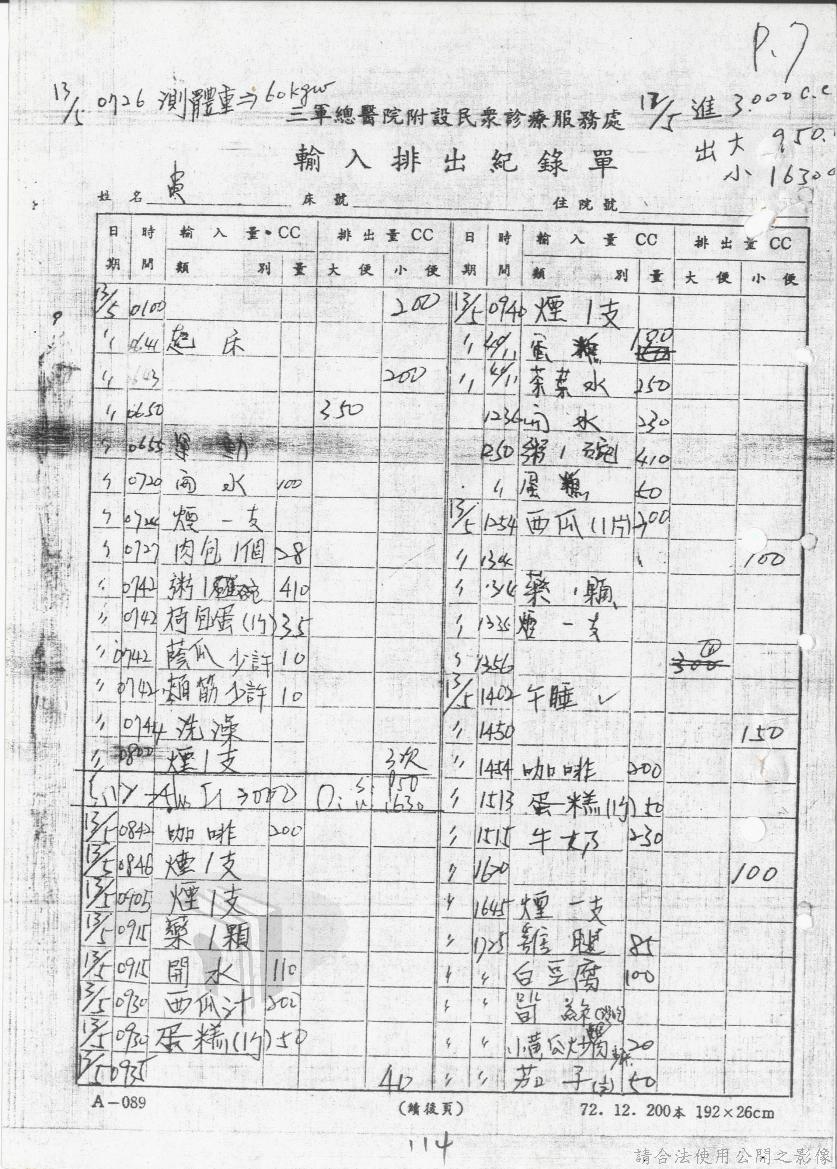 P.7
13/5 0726 測體重⇒60kgw
12/5 進 3.000c.c
出 大 950.
小 1630
三軍總醫院附設民衆診療服務處
輸入排出紀錄單
姓名 床號 住院號
日期 時間 輸入量・CC 排出量CC
類別 量 大便 小便
日期 時間 輸入量CC 排出量CC
類別 量 大便 小便
13/5 0100 200
〃 0641 起床
〃 0643 200
〃 0650 350
〃 0655 運動
〃 0720 開水 100
〃 0724 煙一支
〃 0727 肉包1個 28
〃 0742 粥1碗 410
〃 0742 荷包蛋(1片) 35
〃 0742 蔭瓜 少許 10
〃 0742 麵筋 少許 10
〃 0744 洗澡
〃 0800 煙1支 3次
3000 950
1630
13/5 0842 咖啡 200
13/5 0846 煙1支
13/5 0905 煙1支
13/5 0915 藥1顆
13/5 0915 開水 110
13/5 0930 西瓜汁 200
13/5 0930 蛋糕(1片) 50
13/5 0935 40
13/5 0940 煙1支
〃 蛋糕 100
〃 茶葉水 250
1236 開水 230
1250 粥1碗 410
〃 蛋糕 50
13/5 1254 西瓜(1片) 300
〃 1304 100
〃 1314 藥1顆
〃 1335 煙一支
〃 1356 300
13/5 1402 午睡 ✓
〃 1450 150
〃 1454 咖啡 200
〃 1513 蛋糕(1片) 50
〃 1515 牛奶 230
〃 1620 100
〃 1645 煙一支
〃 1725 雞腿 85
〃 〃 白豆腐 100
〃 〃
〃 〃 小黃瓜炒 20
〃 〃 茄子 50
A-089
(續後頁)
72. 12. 200本 192×26cm
114
請合法使用公開之影像